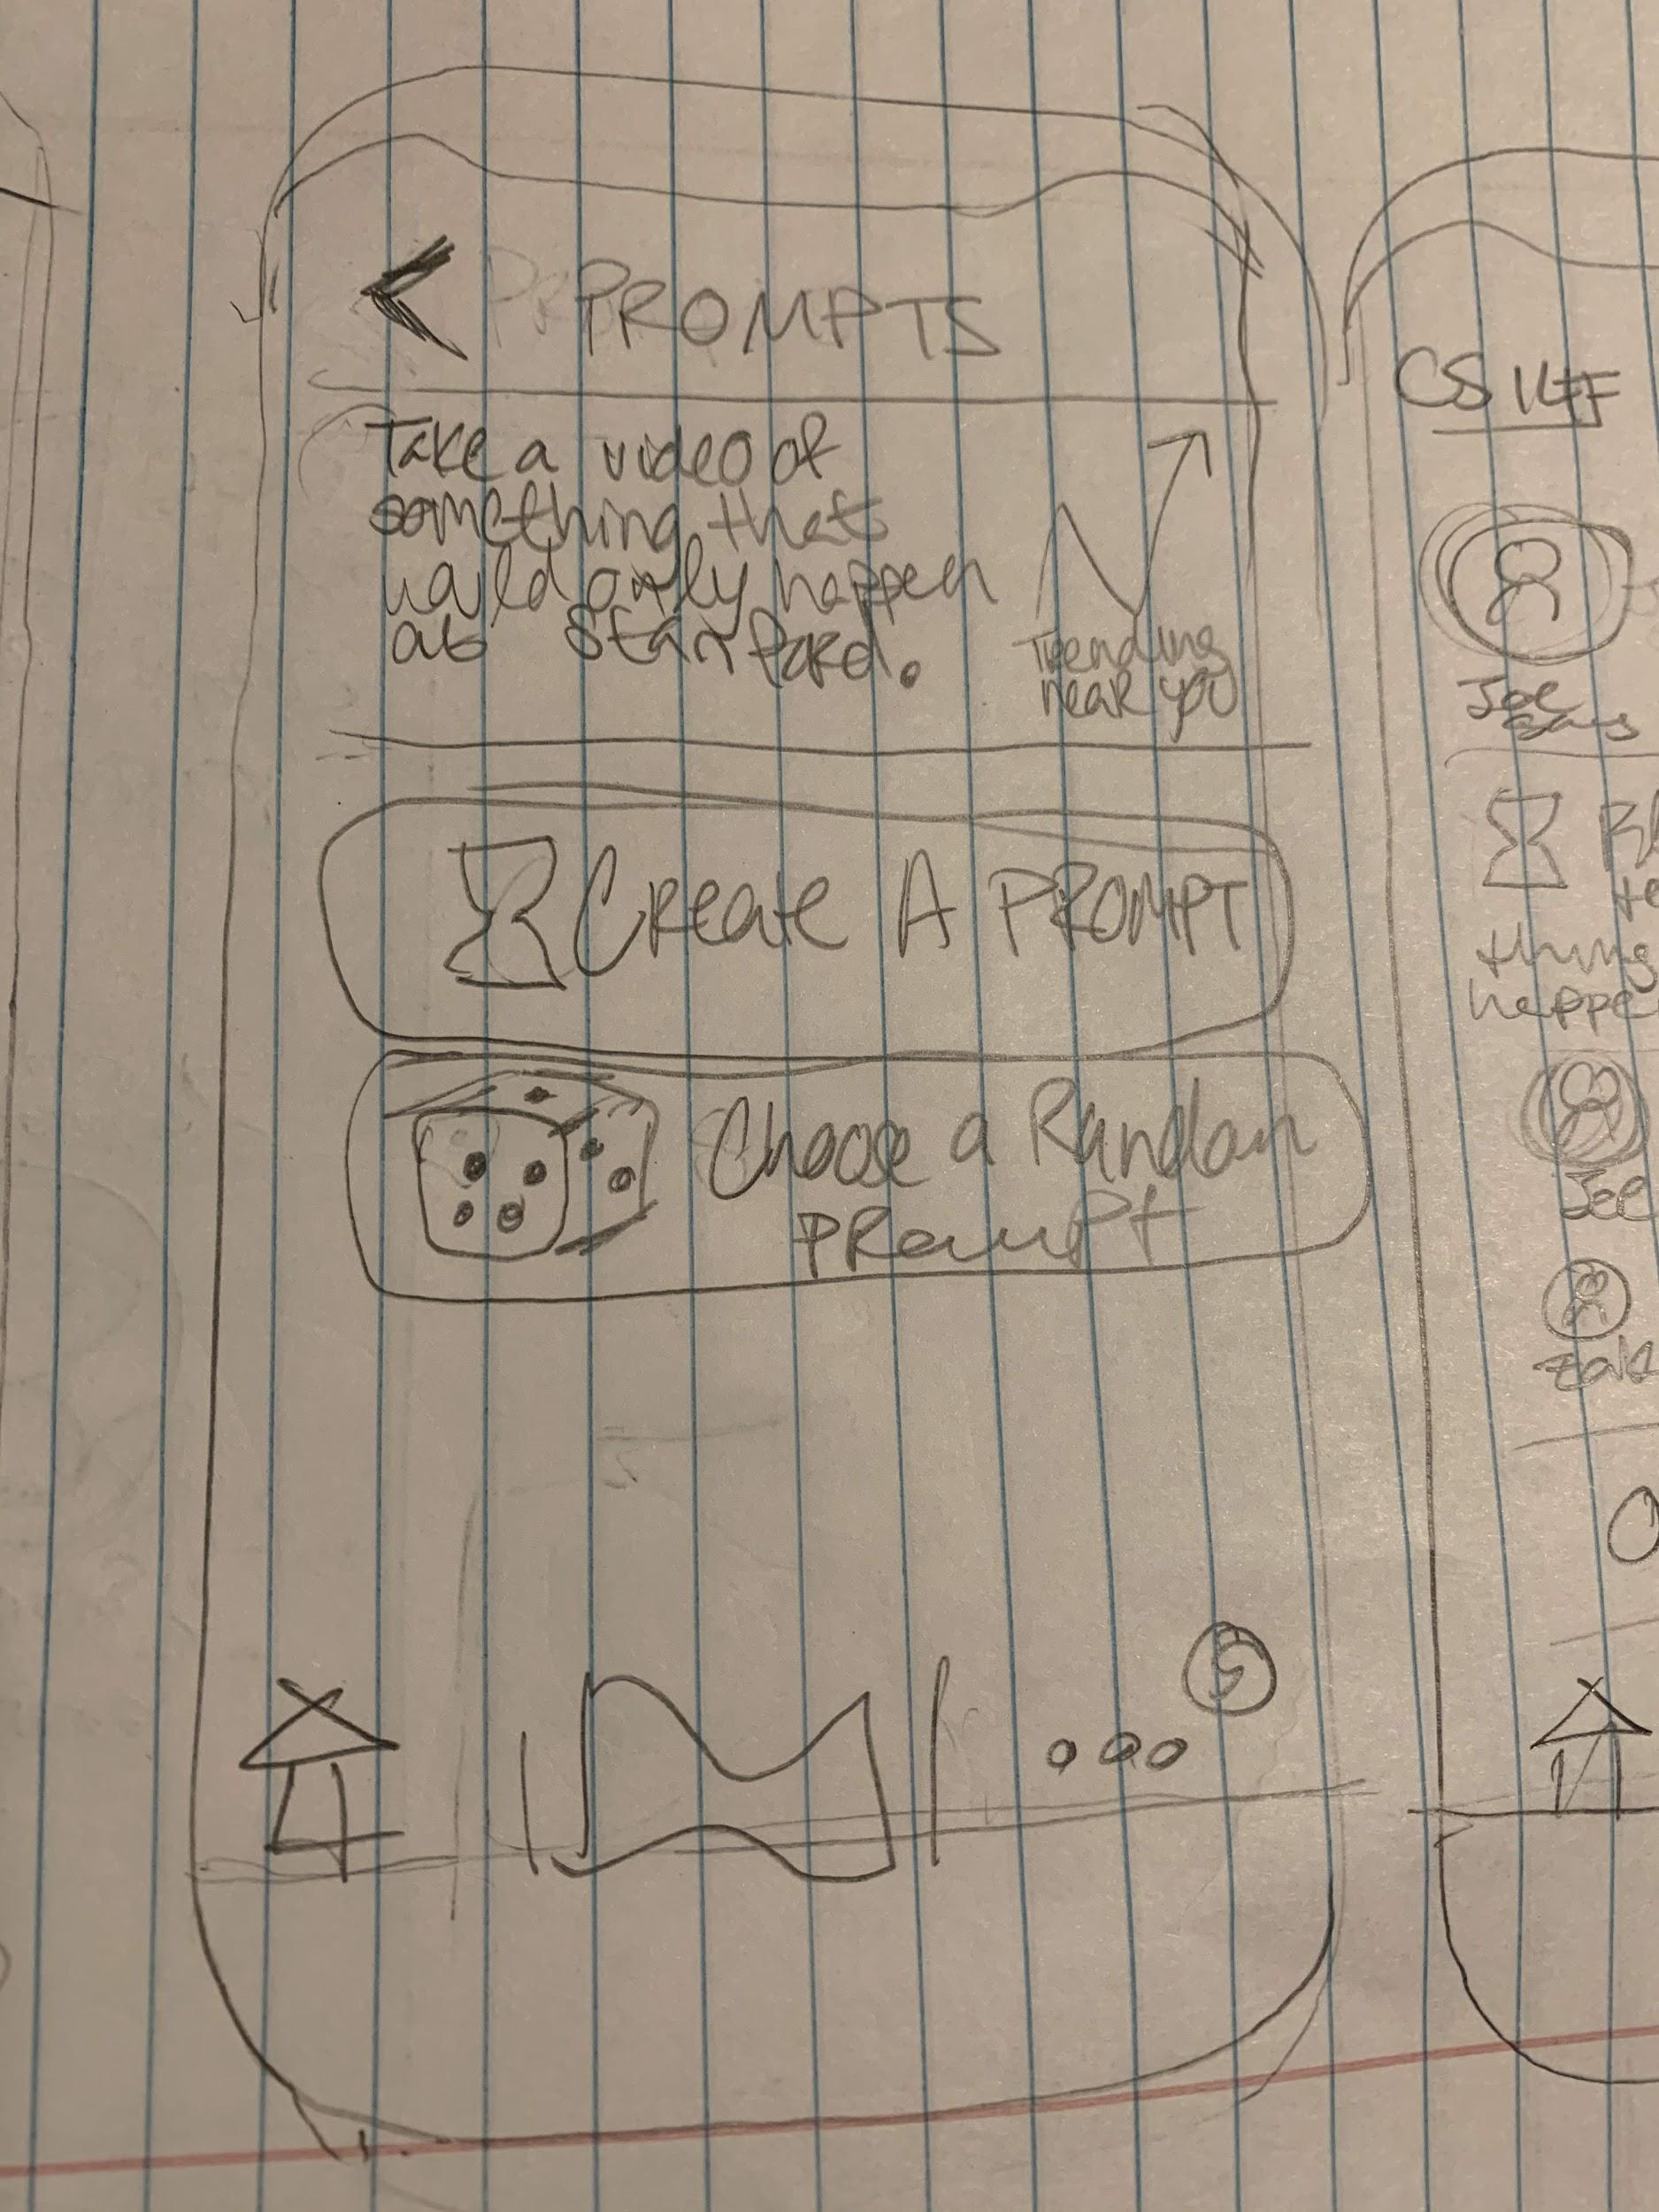 PROMPTS
Take a video of
something thats
would only happen
at Stanford.
Trending
near you
Create A PROMPT
Choose a Random
PRompt
5
CS 147
Joe
says
thing
happe
Joe
Zak